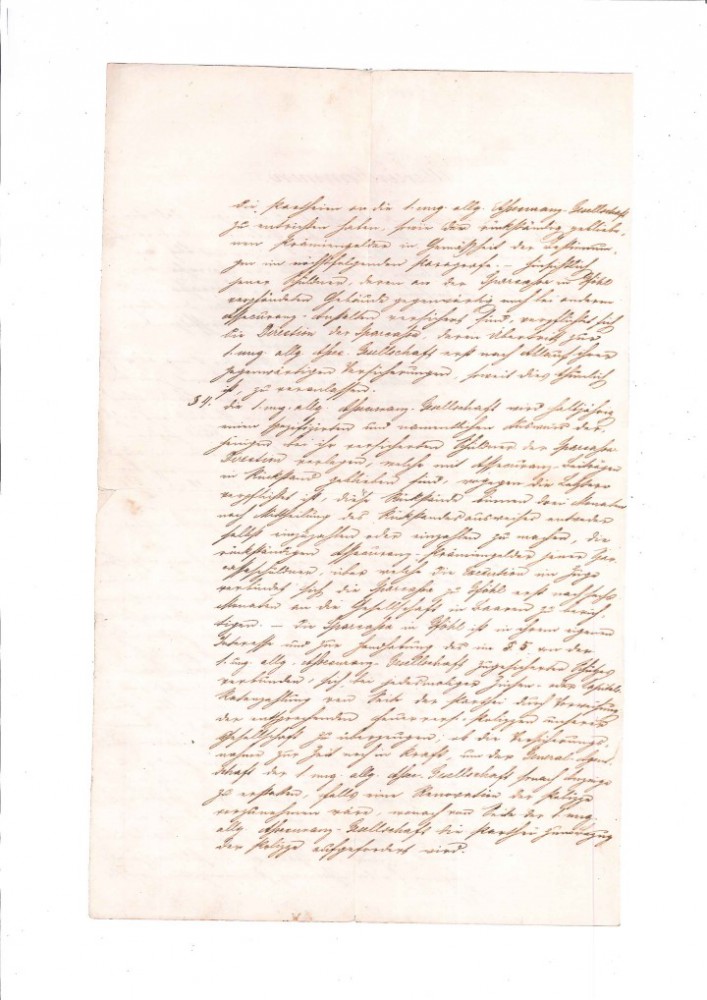 die Partheien an die 1. ung. allg. Assecuranz-Gesellschaft
zu entrichten haben, sowie der rückständig gebliebe-
nen Prämiengelder in Gemäßheit der Bestimmun-
gen im nachfolgenden Paragrafe. – Hinsichtlich
jener Schuldner, deren an der Sparcassa in
verpfändeten Gebäude gegenwärtig noch bei anderen
Assecuranz-Anstalten versichert sind, verpflichtet sich
die Direction der Sparcassa, deren Übertritt zur
1. ung. allg. Assec. Gesellschaft erst nach Ablauf ihrer
gegenwärtigen Versicherungen, soweit dies thunlich
ist, zu veranlassen.
§ 4. Die 1. ung. allg. Assecuranz-Gesellschaft wird halbjährig
einen spezifizirten und namentlichen Ausweis der-
jenigen bei ihr versicherten Schuldner der Sparcassa
Direction vorlegen, welche mit Assecuranz-Beiträgen
im Rückstand geblieben sind, wogegen die Letztere
verpflichtet ist, diese Rückstände binnen drei Monaten
nach Mittheilung des Rückstandsausweises entweder
selbst einzuzahlen oder einzahlen zu machen, die
rückständigen Assecuranz-Prämiengelder jener Spar-
cassaschuldner, über welche die Execution im Zuge
verbindet sich die Sparcassa zu erst nach sechs
Monaten an die Gesellschaft in Baarem zu berich-
tigen. – Die Sparcassa in ist in ihrem eigenen
Interesse und zur Handhabung des im § 5 von der
1. ung. allg. Assecuranz-Gesellschaft zugesicherten Schutzes
verbunden, sich bei jedesmaliger Zinsen- oder Capitals-
Ratenzahlung von Seite der Parthei durch Vorweisung
der entsprechenden Feuervers. Polizzen unserer
Gesellschaft zu überzeugen, ob die Versicherungs-
nahme zur Zeit noch in Kraft, um der General-Agen-
tschaft der 1. ung. allg. Assec. Gesellschaft hernach Anzeige
zu erstatten, falls eine Renovation der Polizze
vorzunehmen wäre, wonach von Seite der 1. ung.
allg. Assecuranz-Gesellschaft die Parthei zum
der Polizze aufgefordert wird.